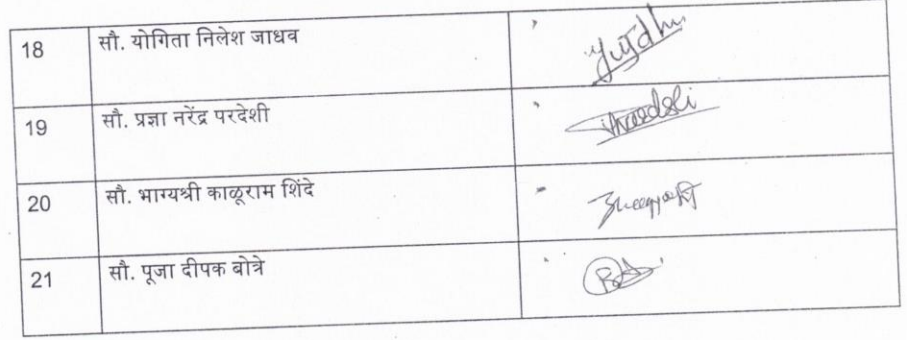 18 सौ. योगिता निलेश जाधव
19 सौ. प्रज्ञा नरेंद्र परदेशी
20 सौ. भाग्यश्री काळूराम शिंदे
21 सौ. पूजा दीपक बोत्रे